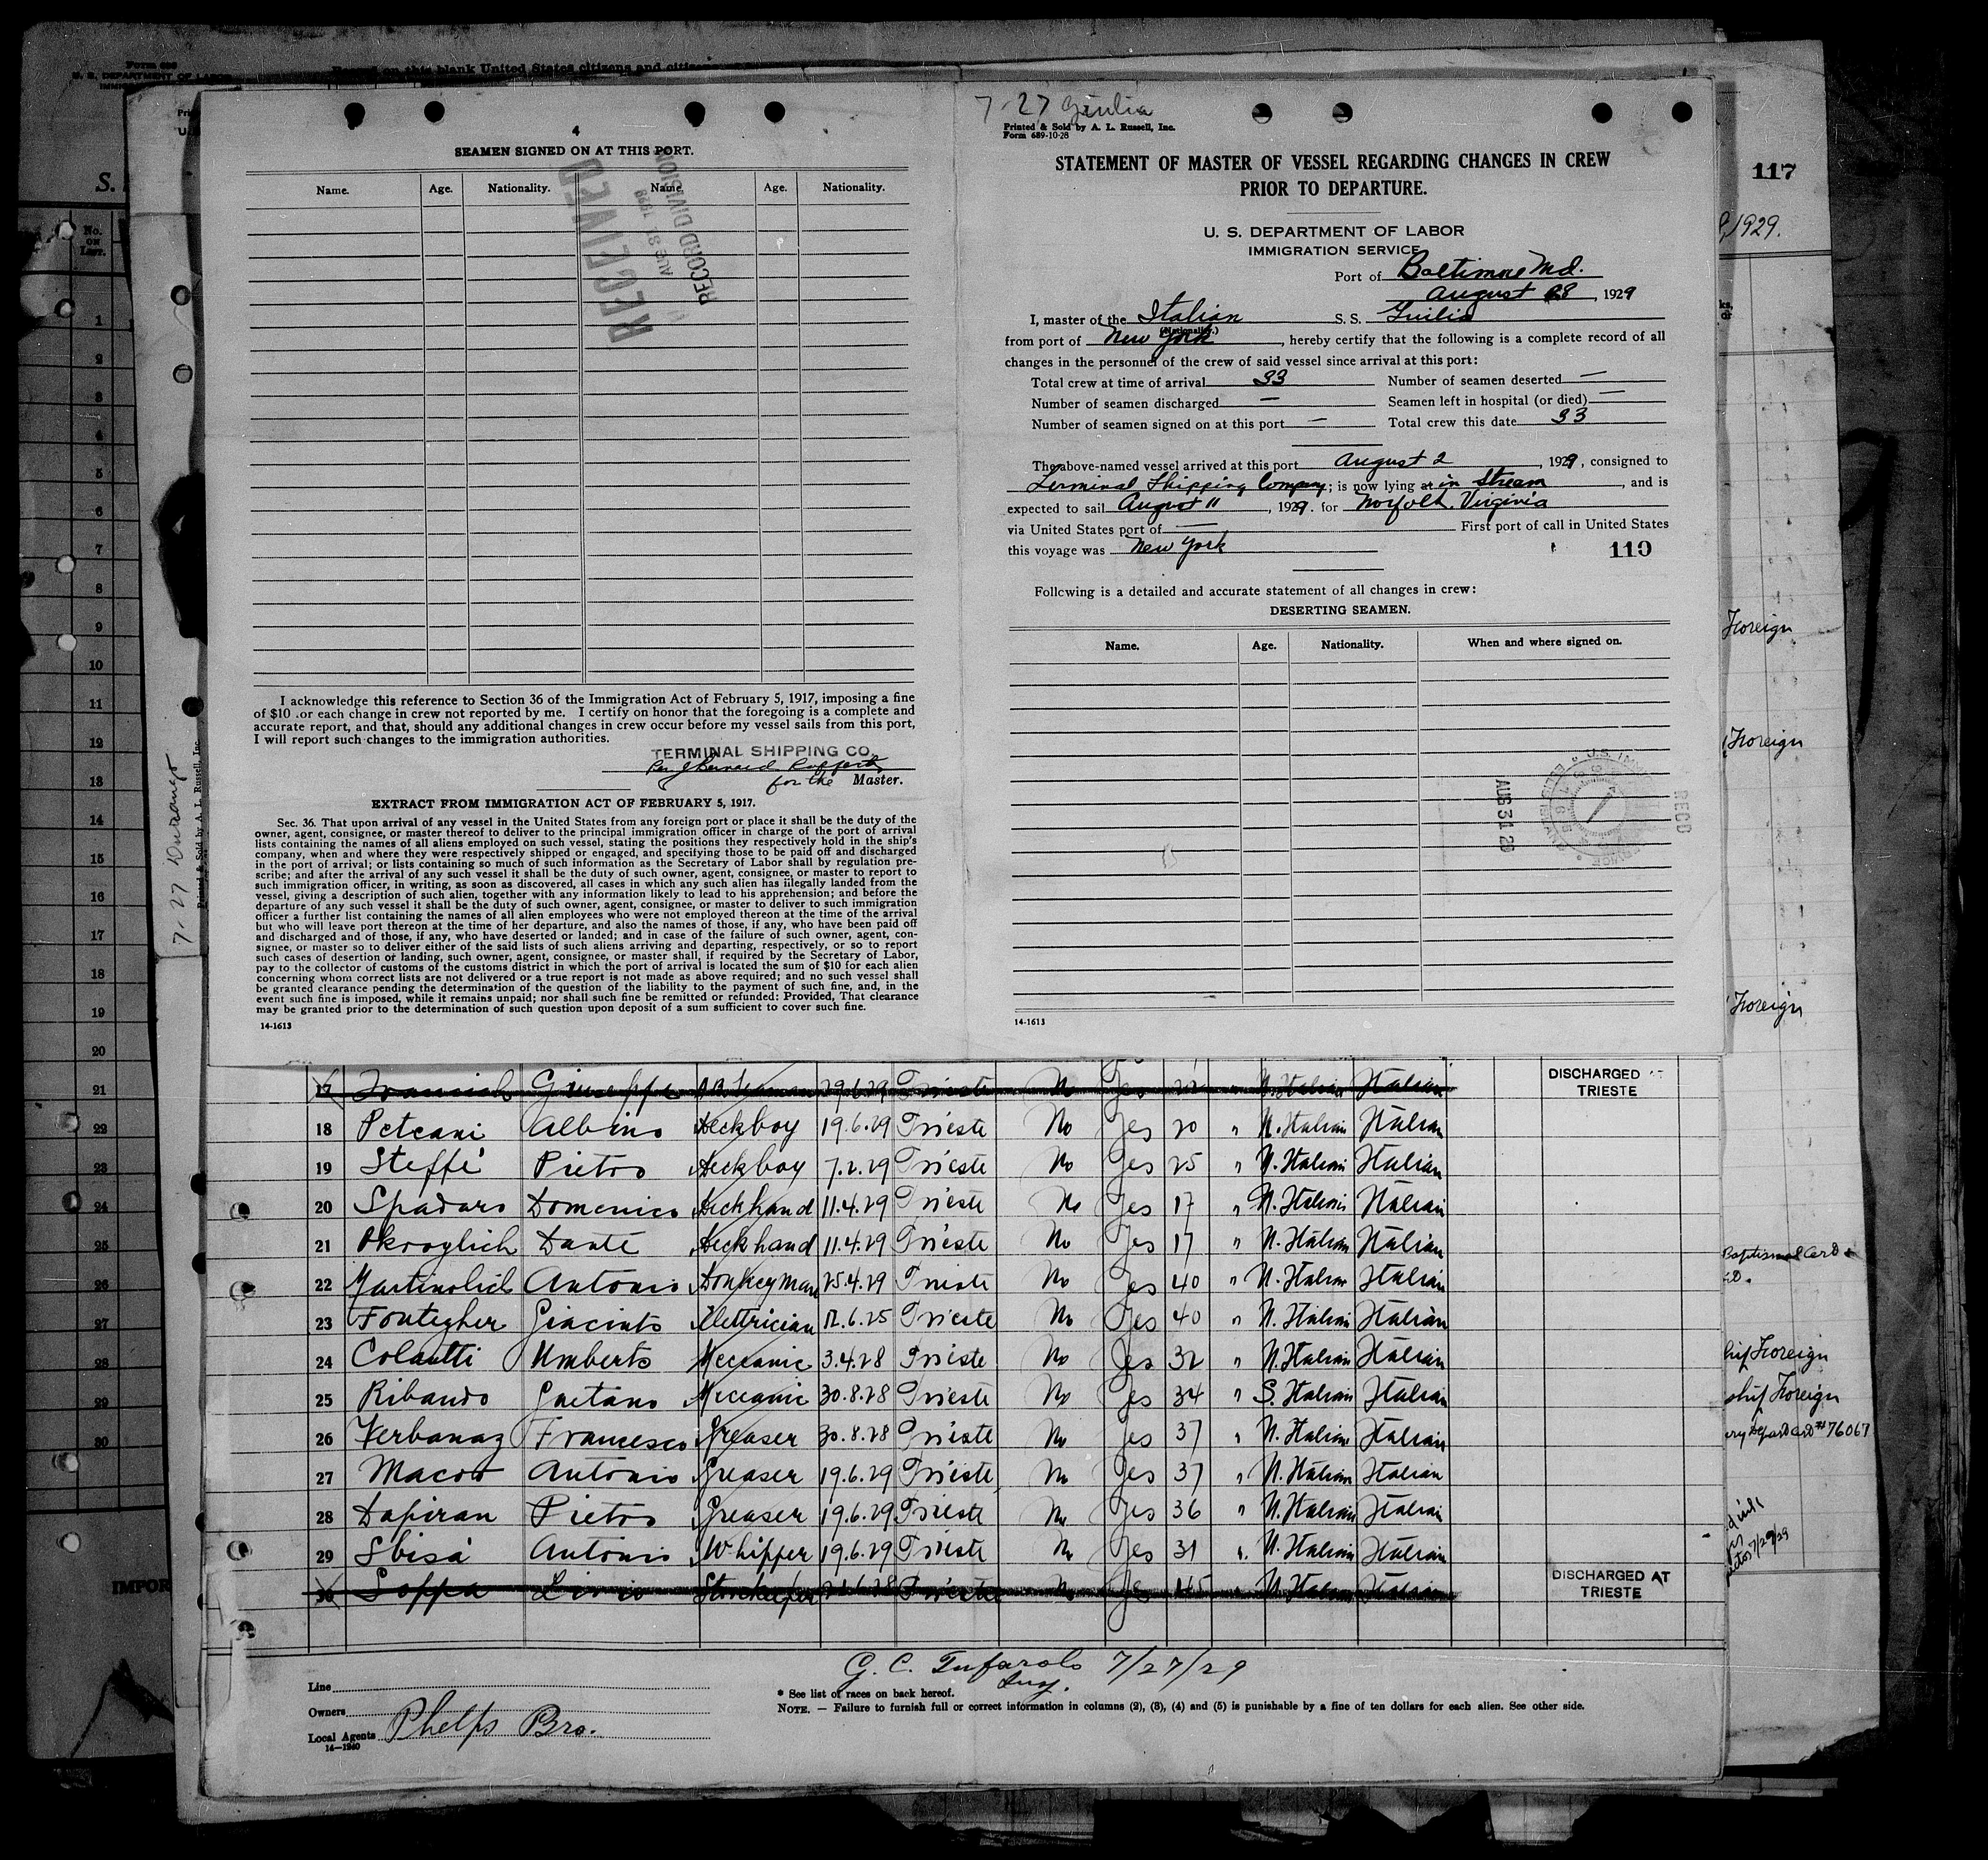 Form 689
U. S. DEPARTMENT OF LABOR
117
1929.
No. on List.
1
2
3
4
5
6
7
8
9
10
11
12
13
14
15
16
17
18
19
20
21
22
23
24
25
26
27
28
29
30
IMPOR
7-27 Durango
Printed & Sold by A. L. Russell, Inc.
Foreign
Foreign
Foreign
Foreign
Foreign
4
SEAMEN SIGNED ON AT THIS PORT.
Name. Age. Nationality. Name. Age. Nationality.
RECEIVED
AUG 31 1929
RECORD DIVISION
I acknowledge this reference to Section 36 of the Immigration Act of February 5, 1917, imposing a fine
of $10 .or each change in crew not reported by me. I certify on honor that the foregoing is a complete and
accurate report, and that, should any additional changes in crew occur before my vessel sails from this port,
I will report such changes to the immigration authorities.
TERMINAL SHIPPING CO.
for the Master.
EXTRACT FROM IMMIGRATION ACT OF FEBRUARY 5, 1917.
Sec. 36. That upon arrival of any vessel in the United States from any foreign port or place it shall be the duty of the
owner, agent, consignee, or master thereof to deliver to the principal immigration officer in charge of the port of arrival
lists containing the names of all aliens employed on such vessel, stating the positions they respectively hold in the ship's
company, when and where they were respectively shipped or engaged, and specifying those to be paid off and discharged
in the port of arrival; or lists containing so much of such information as the Secretary of Labor shall by regulation pre-
scribe; and after the arrival of any such vessel it shall be the duty of such owner, agent, consignee, or master to report to
such immigration officer, in writing, as soon as discovered, all cases in which any such alien has illegally landed from the
vessel, giving a description of such alien, together with any information likely to lead to his apprehension; and before the
departure of any such vessel it shall be the duty of such owner, agent, consignee, or master to deliver to such immigration
officer a further list containing the names of all alien employees who were not employed thereon at the time of the arrival
but who will leave port thereon at the time of her departure, and also the names of those, if any, who have been paid off
and discharged and of those, if any, who have deserted or landed; and in case of the failure of such owner, agent, con-
signee, or master so to deliver either of the said lists of such aliens arriving and departing, respectively, or so to report
such cases of desertion or landing, such owner, agent, consignee, or master shall, if required by the Secretary of Labor,
pay to the collector of customs of the customs district in which the port of arrival is located the sum of $10 for each alien
concerning whom correct lists are not delivered or a true report is not made as above required; and no such vessel shall
be granted clearance pending the determination of the question of the liability to the payment of such fine, and, in the
event such fine is imposed, while it remains unpaid; nor shall such fine be remitted or refunded: Provided, That clearance
may be granted prior to the determination of such question upon deposit of a sum sufficient to cover such fine.
14-1613
7-27 Giulia
Printed & Sold by A. L. Russell, Inc.
Form 689-10-28
STATEMENT OF MASTER OF VESSEL REGARDING CHANGES IN CREW
PRIOR TO DEPARTURE.
U. S. DEPARTMENT OF LABOR
IMMIGRATION SERVICE
Port of Baltimore Md.
August 28, 1929
I, master of the Italian S. S. Giulia
(Nationality.)
from port of New York, hereby certify that the following is a complete record of all
changes in the personnel of the crew of said vessel since arrival at this port:
Total crew at time of arrival 33 Number of seamen deserted —
Number of seamen discharged — Seamen left in hospital (or died) —
Number of seamen signed on at this port — Total crew this date 33
The above-named vessel arrived at this port August 2, 1929, consigned to
Terminal Shipping Company; is now lying at in stream, and is
expected to sail August 11, 1929. for Norfolk. Virginia
via United States port of — First port of call in United States
this voyage was New York
119
Following is a detailed and accurate statement of all changes in crew:
DESERTING SEAMEN.
Name. Age. Nationality. When and where signed on.
AUG 31 29
RECD
14-1613
17 Giuseppe AB Seaman 29.6.29 Trieste No Yes " N. Italian Italian DISCHARGED AT TRIESTE
18 Peteani Albino Deckboy 19.6.29 Trieste No Yes 20 " N. Italian Italian
19 Steffè Pietro Deckboy 7.2.29 Trieste No Yes 25 " N. Italian Italian
20 Spadaro Domenico Deckhand 11.4.29 Trieste No Yes 17 " N. Italian Italian
21 Okroglich Dante Deckhand 11.4.29 Trieste No Yes 17 " N. Italian Italian
22 Martinolich Antonio Donkeyman 25.4.29 Trieste No Yes 40 " N. Italian Italian
23 Fontegher Giacinto Elettrician 12.6.25 Trieste No Yes 40 " N. Italian Italian
24 Colautti Umberto Meccanic 3.4.28 Trieste No Yes 32 " N. Italian Italian
25 Ribaudo Gaetano Meccanic 30.8.28 Trieste No Yes 34 " S. Italian Italian
26 Verbanaz Francesco Greaser 30.8.28 Trieste No Yes 37 " N. Italian Italian
27 Macor Antonio Greaser 19.6.29 Trieste No Yes 37 " N. Italian Italian
28 Dapiran Pietro Greaser 19.6.29 Trieste No Yes 36 " N. Italian Italian
29 Sbisà Antonio Whipper 19.6.29 Trieste No Yes 31 " N. Italian Italian
30 Soppa Livio Storekeeper Trieste No Yes 45 " N. Italian Italian DISCHARGED AT TRIESTE
G. C. Tufarolo 7/27/29
Insp.
Line
Owners
Local Agents Phelps Bro.
14—1240
* See list of races on back hereof.
NOTE. — Failure to furnish full or correct information in columns (2), (3), (4) and (5) is punishable by a fine of ten dollars for each alien. See other side.